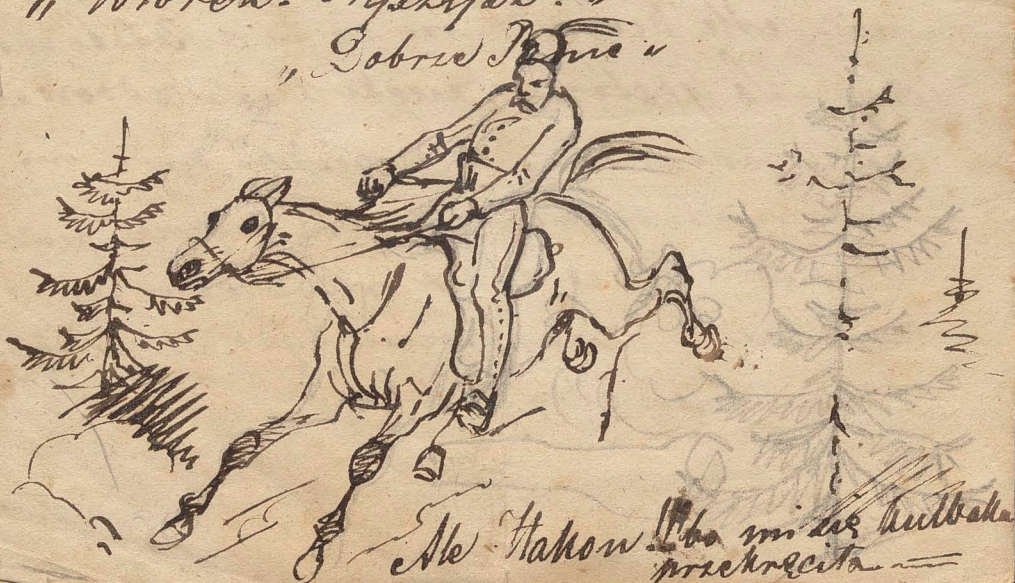 „Dobrze Panie"
Ale Hakon!! bo mi się kulbaka
przekręciła